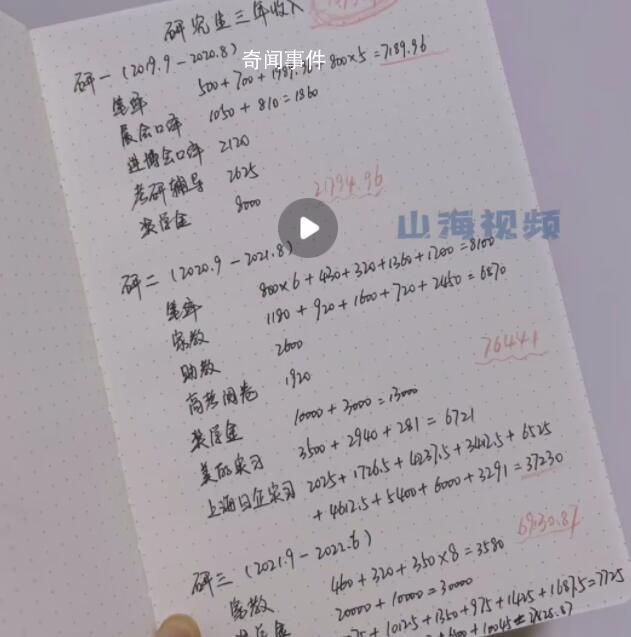 研究生三年收入
奇闻事件
研一（2019.9-2020.8）
笔译 500+700+1989.96+800×5=7189.96
展会口译 1050+810=1860
进博会口译 2120
考研辅导 2625
奖学金 8000
21794.96
山海视频
研二（2020.9-2021.8）
笔译 800×6+430+320+1360+1200=8100
家教 1180+920+1600+720+2450=6870
助教 2600
高考阅卷 1920
76441
奖学金 10000+3000=13000
美的实习 3500+2940+281=6721
上海日企实习 2025+1726.5+4237.5+3412.5+6525
+4612.5+5400+6000+3291=37230
69130.87
研三（2021.9-2022.6）
家教 460+320+350×8=3580
奖学金 20000+10000=30000
+1012.5+1350+975+1425+1687.5=7725